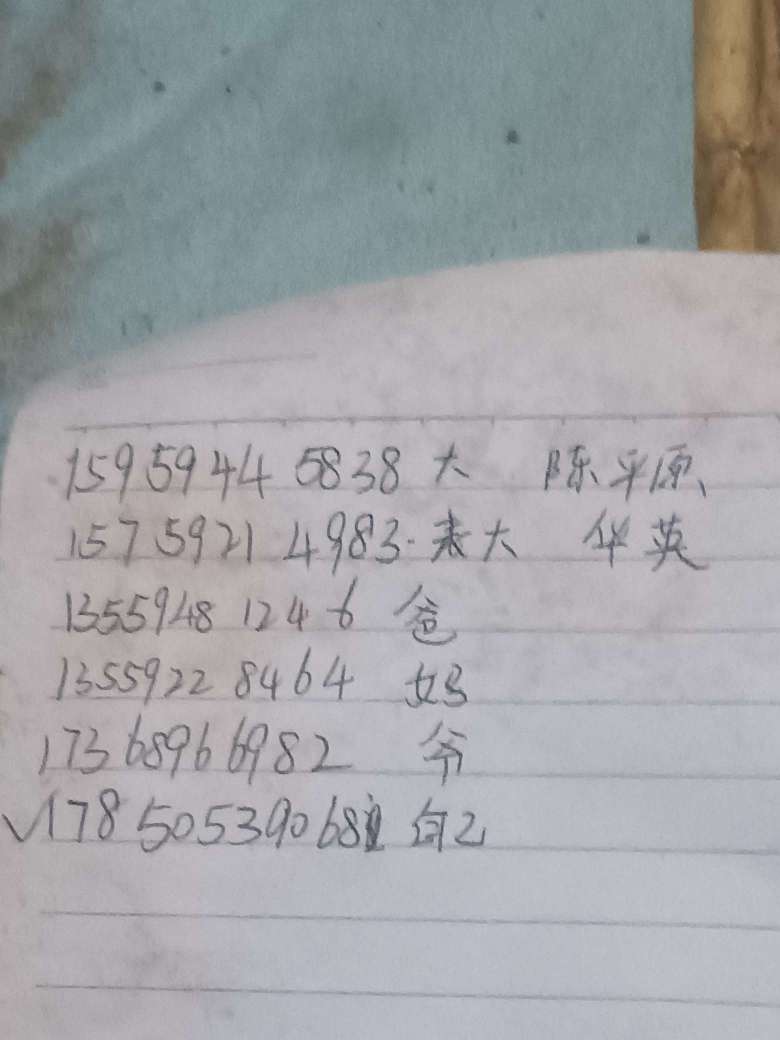 15959445838 大 陈平原、
15759214983. 表大 华英
13559481246 爸
13559228464 妈
17368966982 爷
✓17850539068 自己